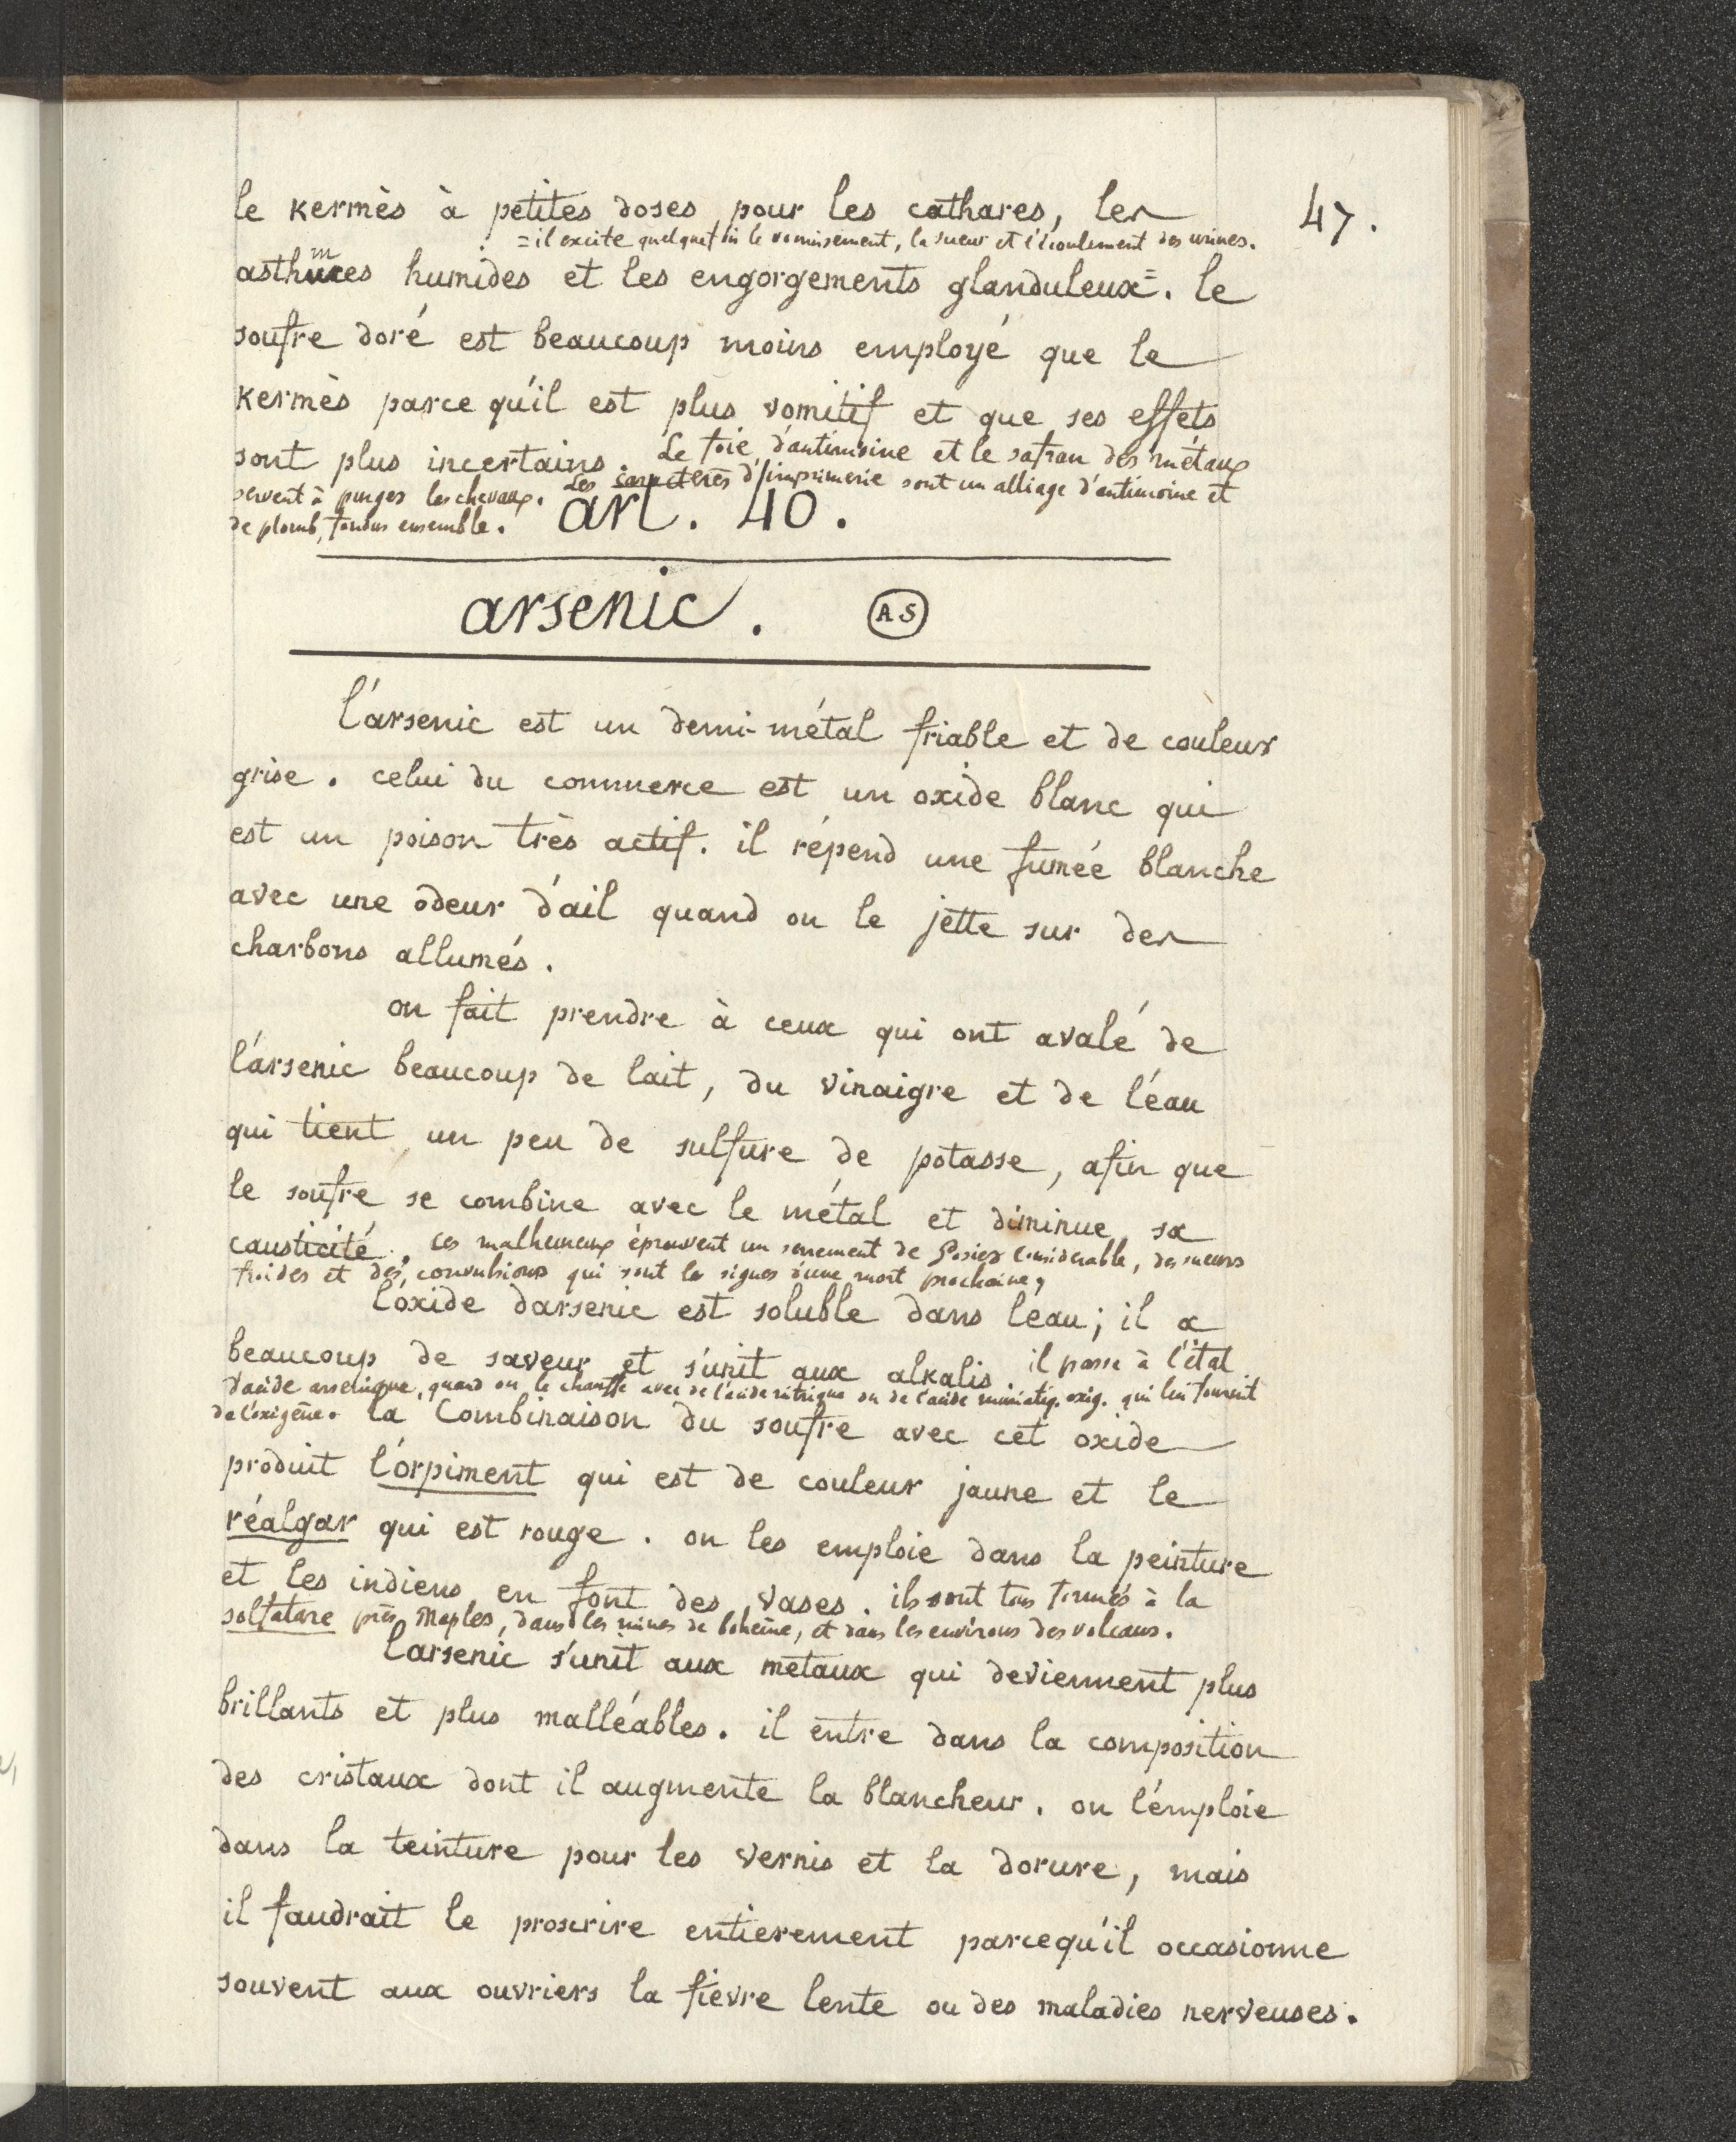 47.
le kermès à petites doses pour les cathares, les
= il excite quelquefois le vomissement, la sueur et l'écoulement des urines.
asthmes humides et les engorgements glanduleux =. le
soufre doré est beaucoup moins employé que le
kermès parce qu'il est plus vomitif et que ses effets
sont plus incertains. Le foie d'antimoine et le safran des métaux
servent à purger les chevaux. Les caractères d'imprimerie sont un alliage d'antimoine et
de plomb, fondus ensemble. art. 40.
arsenic. AS
l'arsenic est un demi-métal friable et de couleur
grise. celui du commerce est un oxide blanc qui
est un poison très actif. il répend une fumée blanche
avec une odeur d'ail quand on le jette sur des
charbons allumés.
on fait prendre à ceux qui ont avalé de
l'arsenic beaucoup de lait, du vinaigre et de l'eau
qui tient un peu de sulfure de potasse, afin que
le soufre se combine avec le métal et diminue sa
causticité. ces malheureux éprouvent un serrement de Gosier considerable, des sueurs
froides et des convulsions qui sont les signes d'une mort prochaine,
l'oxide d'arsenic est soluble dans l'eau; il a
beaucoup de saveur et s'unit aux alkalis. il passe à l'état
d'acide arsenique, quand on le chauffe avec de l'acide nitrique ou de l'acide muriatiq. oxig. qui lui fournit
de l'oxigène. la Combinaison du soufre avec cet oxide
produit l'orpiment qui est de couleur jaune et le
réalgar qui est rouge. on les emploie dans la peinture
et les indiens en font des vases. ils sont tous formés à la
solfatare près Naples, dans les mines de bohême, et dans les environs des volcans.
l'arsenic s'unit aux métaux qui deviennent plus
brillants et plus malléables. il entre dans la composition
des cristaux dont il augmente la blancheur. on l'emploie
dans la teinture pour les vernis et la dorure, mais
il faudrait le proscrire entierement parcequ'il occasionne
souvent aux ouvriers la fièvre lente ou des maladies nerveuses.